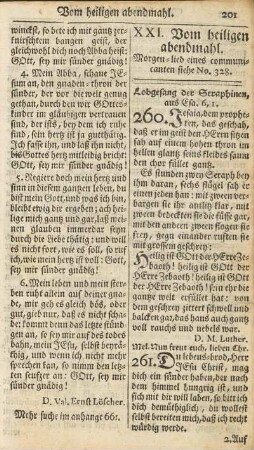 Vom heiligen abendmahl. 201
winckst, so bete ich mit gantz zer-
knirschtem bangen geist, der
gleichwohl dich noch Abba heist:
GOtt, sey mir sünder gnädig!
4. Mein Abba, schaue JE-
sum an, den gnaden-thron der
sünder, der vor die welt genug
gethan, durch den wir GOttes-
kinder im gläubigen vertrauen
sind, der ists, bey dem ich ruhe
find, sein hertz ist ja gut thätig.
Ich fasse ihn, und laß ihn nicht,
bis GOttes hertz mitleidig bricht:
GOtt, sey mir sünder gnädig!
5. Regiere doch mein hertz und
sinn in diesem gantzen leben, du
bist mein GOtt, und was ich bin,
bleibt ewig dir ergeben; ach heili-
ge mich gantz und gar, laß mei-
nen glauben immerdar seyn
durch die liebe thätig: und will
es nicht fort, wie es soll, so ruf
ich, wie mein hertz ist voll: GOtt,
sey mir sünder gnädig!
6. Mein leben und mein ster-
ben ruht allein auf deiner gna-
de, mir geh es gleich bös, oder
gut, gieb nur, daß es nicht schade:
kommt denn das letzte stünd-
gen an, so sey mir auf des todes
bahn, mein JEsu, selbst bey-
räthig, und wenn ich nicht mehr
sprechen kan, so nimm den letz-
ten seufzer an: GOtt, sey mir
sünder gnädig!
D. Val. Ernst Löscher.
Mehr suche im anhange 661.
XXI. Vom heiligen
abendmahl.
Morgen-lied eines communi-
canten siehe No. 328.
Lobgesang der Seraphinen,
aus Esa. 6, 1.
260. Jesaia, dem prophe-
ten, das geschah,
daß er im geist den HErrn sitzen
sah auf einem hohen thron in
hellem glantz, seines kleides
saum den chor füllet gantz. Es
stunden zween Seraph bey ihm
daran, sechs flügel sah er einen
jeden han: mit zween verbargen
sie ihr antlitz klar, mit
zween bedeckten sie die füsse gar,
mit den andern zween sie flogen
frey, gegn einander ruften sie
mit grossem geschrey:
Heilig ist GOtt der HErre Ze-
baoth! heilig ist GOtt der
HErre Zebaoth! heilig ist GOtt
der HErre Zebaoth! sein ehr die
gantze welt erfüllet hat: von
dem geschrey zittert schwell und
balcken gar, das haus auch gantz
voll rauchs und nebels war.
D. M. Luther.
Mel. Nun freut euch, lieben Chr.
261. Du lebens-brod, HErr
JEsu Christ, mag
dich ein sünder haben, der nach
dem himmel hungrig ist, und
sich mit dir will laben, so bitt ich
dich demüthiglich, du wollest
selbst bereiten mich, daß ich recht
würdig werde.
2. Auf